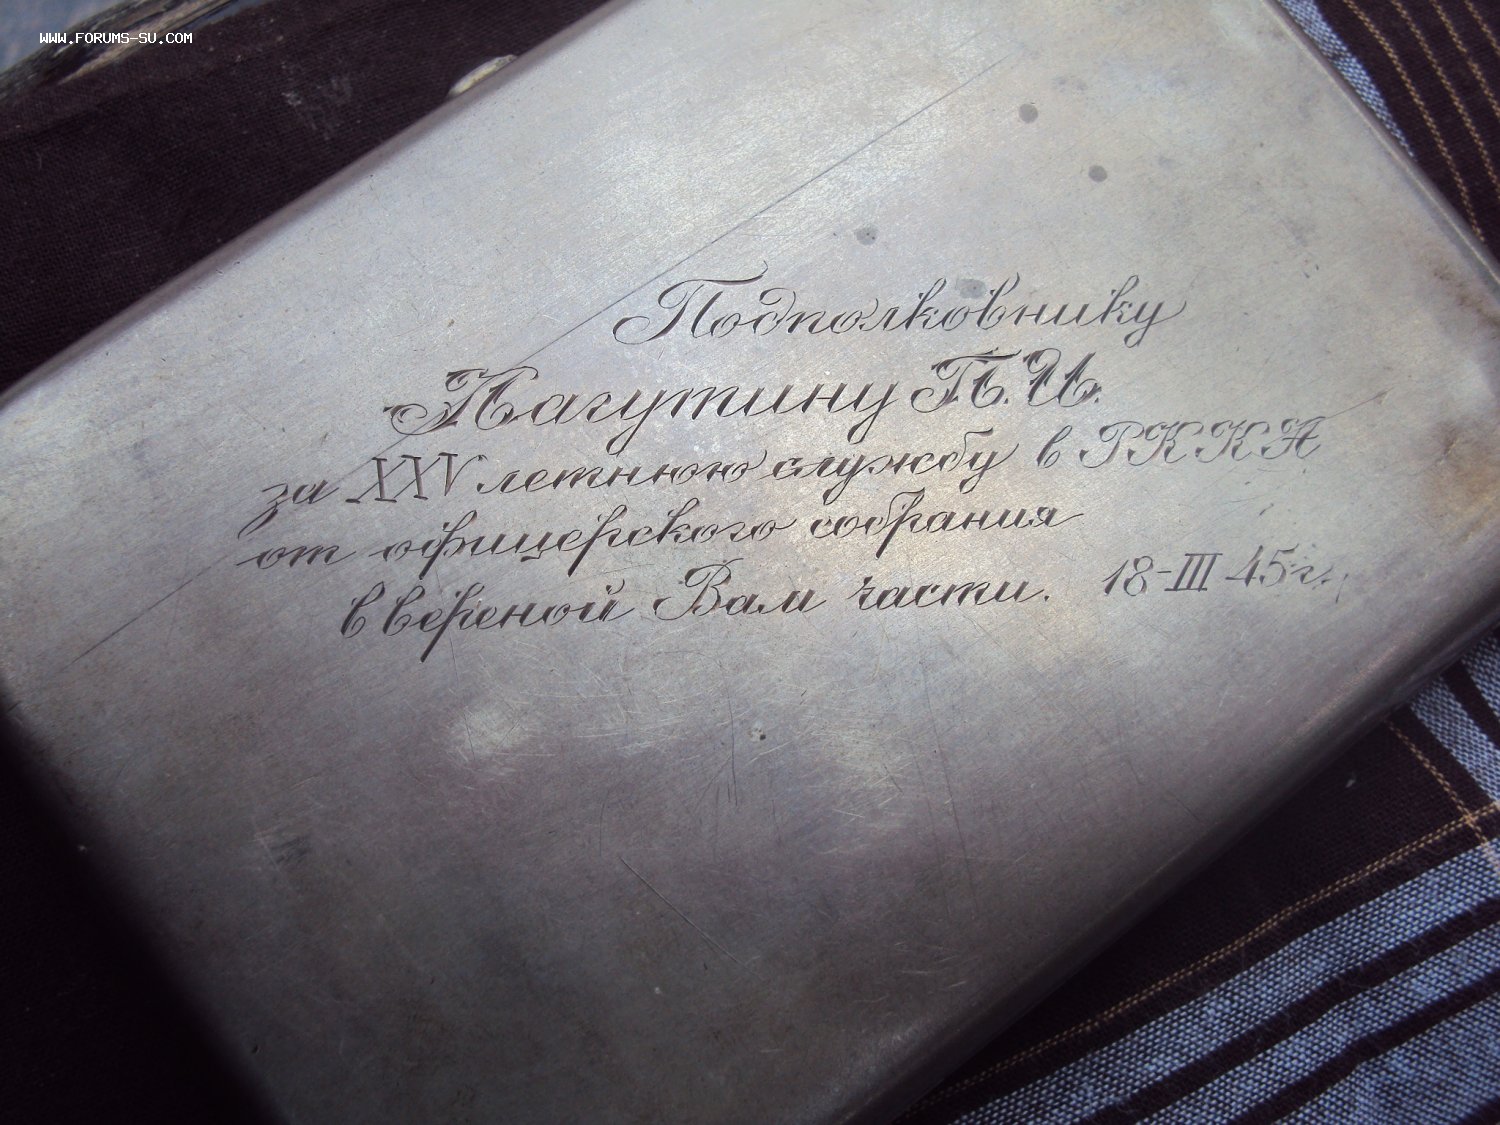 WWW.FORUMS-SU.COM
Подполковнику
Лагутину П.И.
за XXV летнюю службу в РККА
от офицерского собрания
в вереной Вам части. 18-III 45 г.